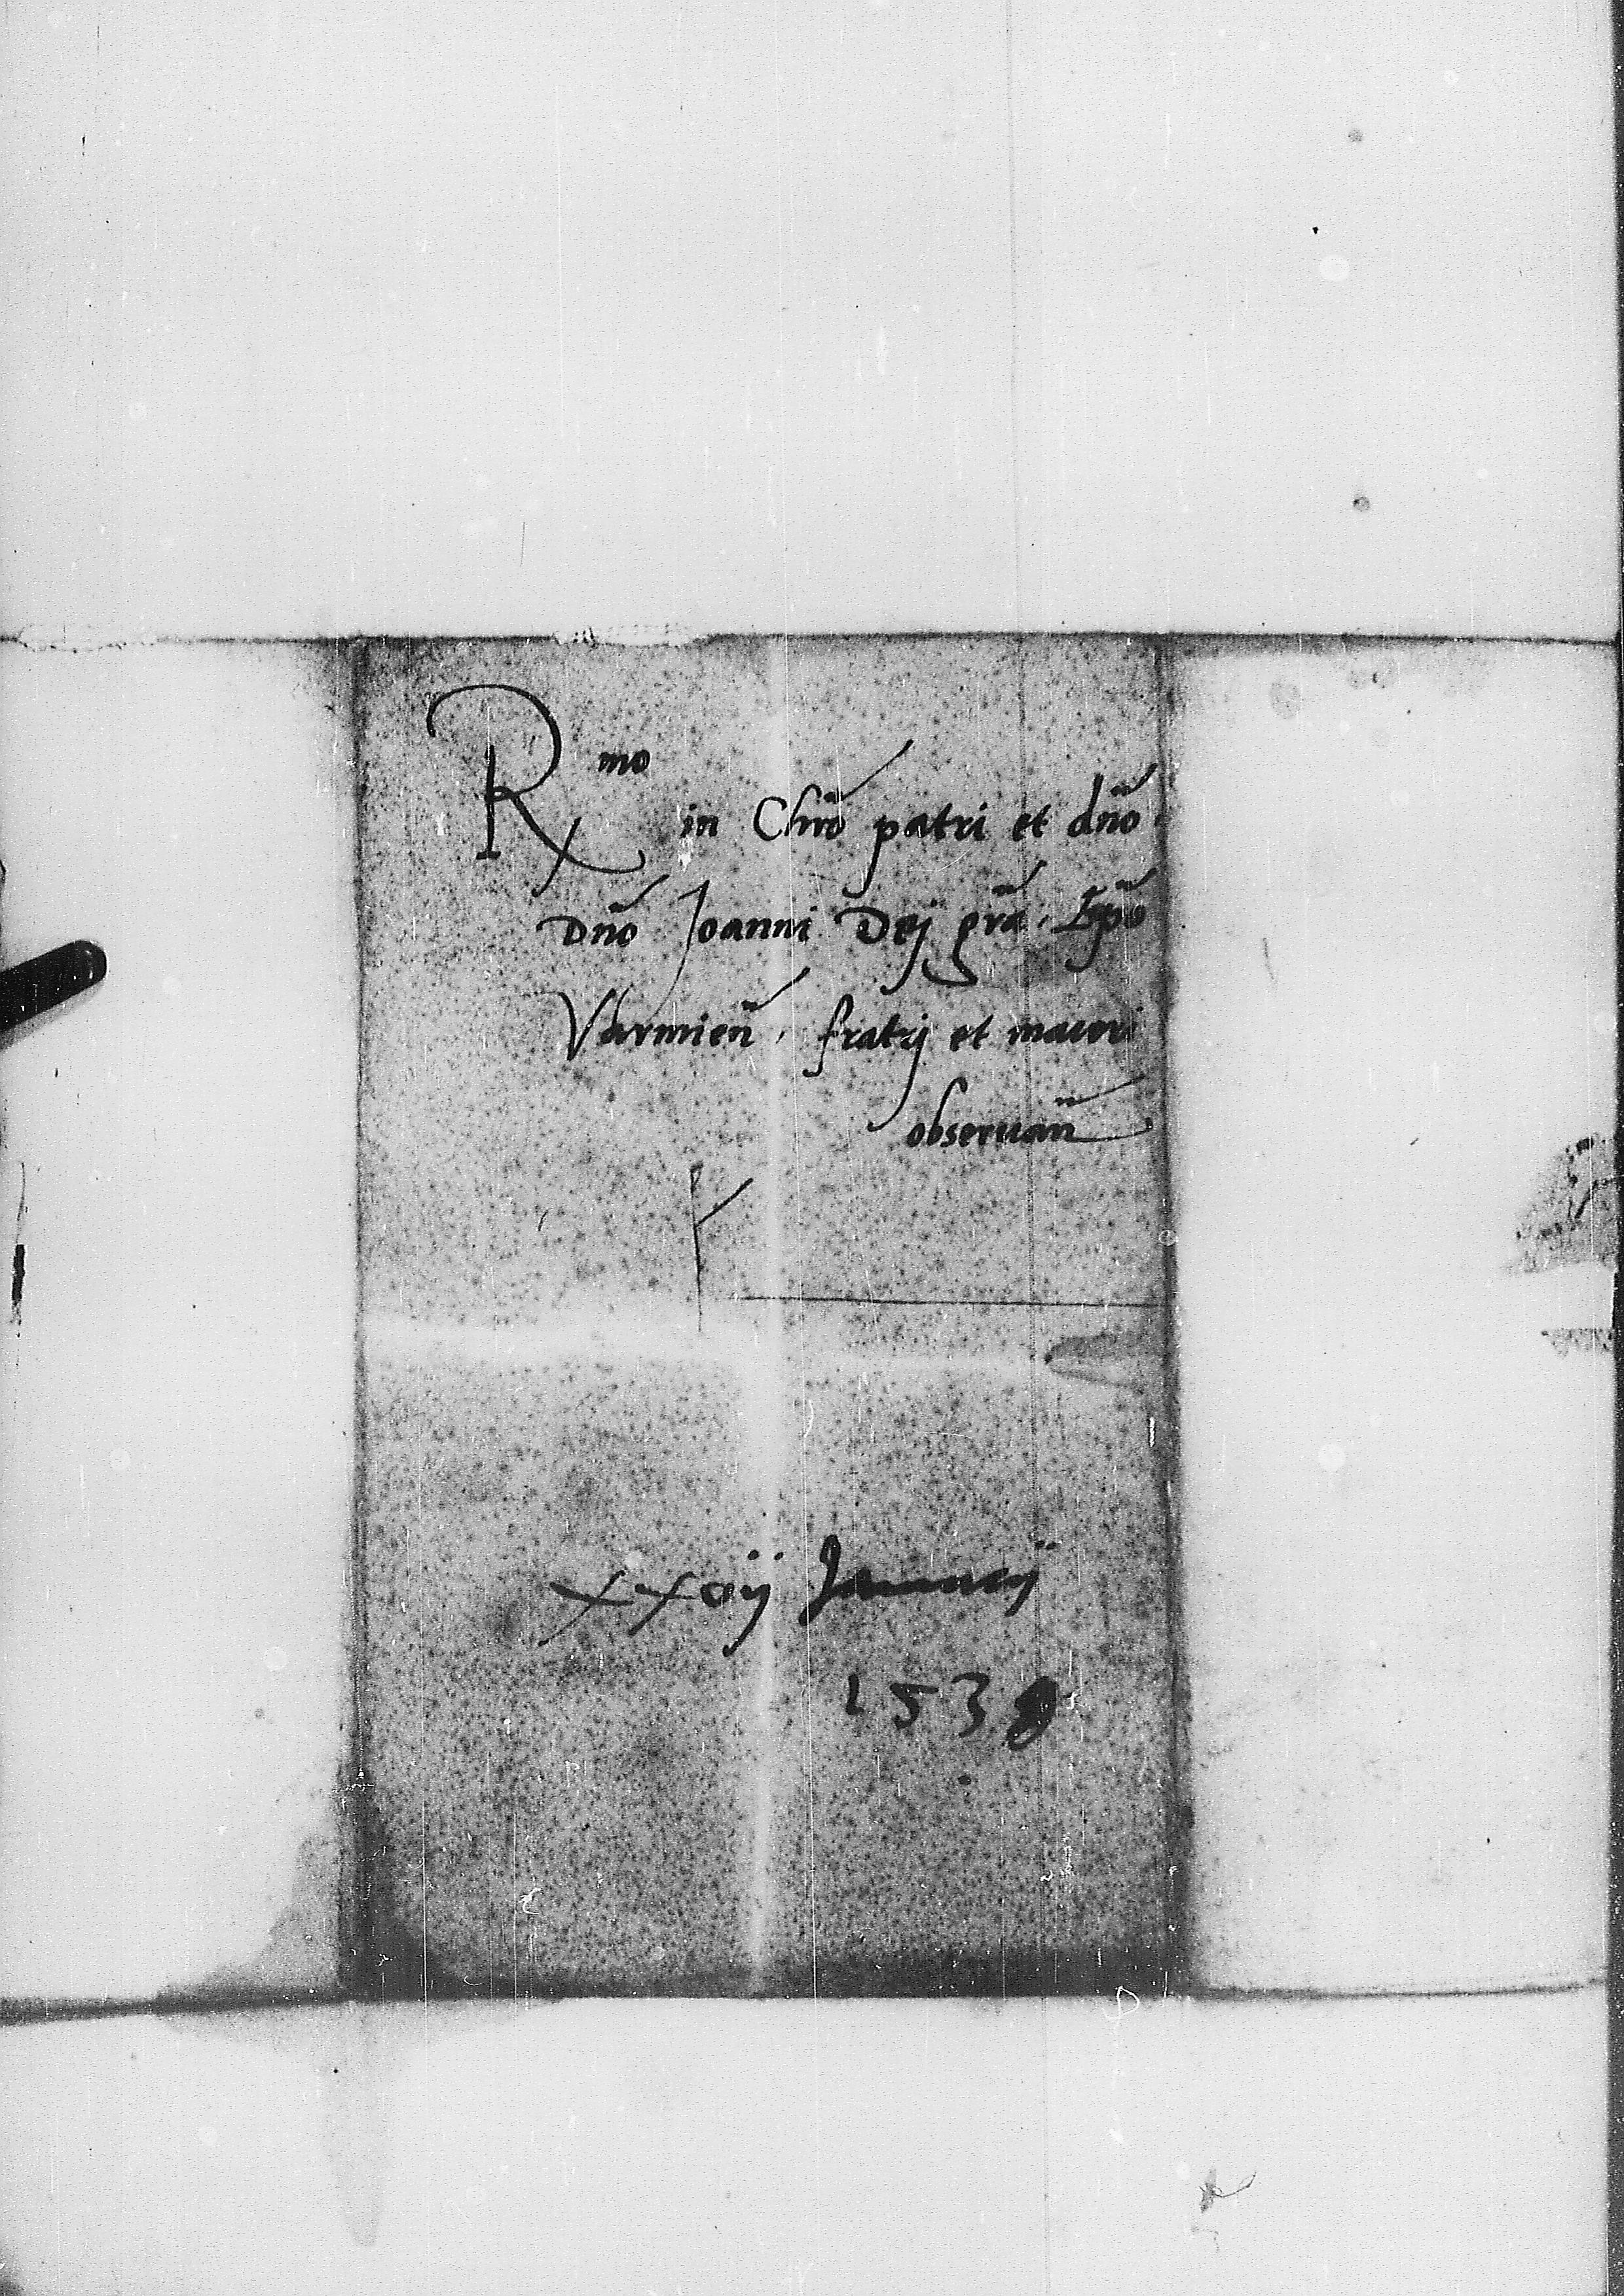 R mo in Chrō patri et dño
Dño Joanni Dej gr̃a Ep̃o
Varmieñ. fratrj et maiori
obseruañ
xxvij Januarij
1538